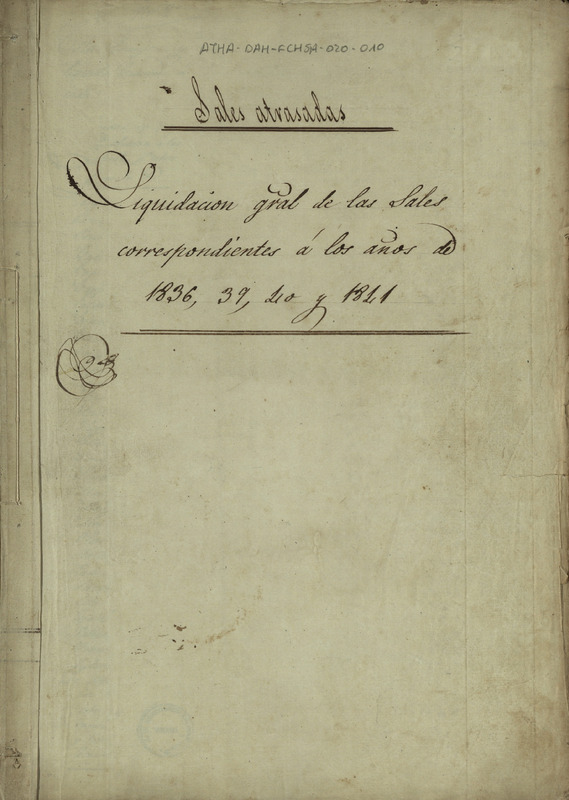 ATHA-DAH-FCHSA-020-010
Sales atrasadas
Liquidacion gral de las Sales
correspondientes á los años de
1836, 39, 40 y 1841